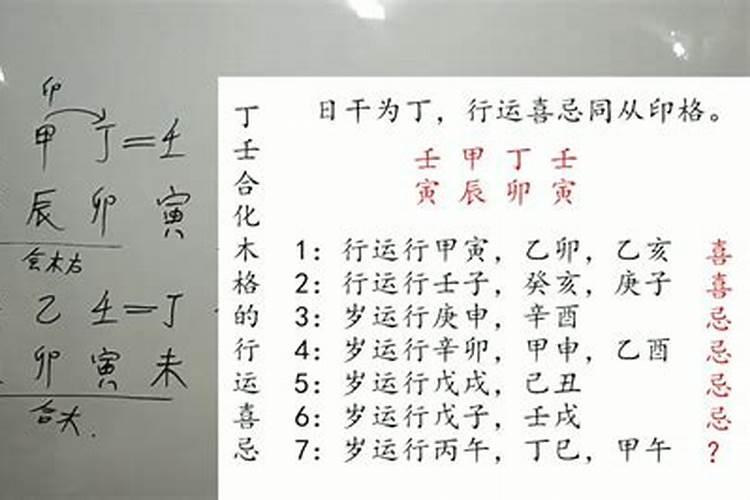 卯
甲 丁=壬
辰 卯 寅
会木方
乙 壬=丁
卯 寅 未
合木.
丁壬合化木格的行运喜忌
日干为丁，行运喜忌同从印格。
壬 甲 丁 壬
寅 辰 卯 寅
1：行运行甲寅，乙卯，乙亥 喜
2：行运行壬子，癸亥，庚子 喜
3：岁运行庚申，辛酉 忌
4：岁运行辛卯，甲申，乙酉 忌
5：岁运行戊戌，己丑 忌
6：岁运行戊子，壬戌 忌
7：岁运行丙午，丁巳，甲午 ？